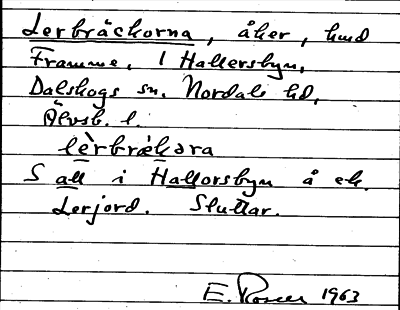 Lerbräckorna, åker, hmd
Framme, 1 Hallersbyn,
Dalskogs sn. Nordals hd,
Älvsb. l.
lèrbrækɔra
S all i Hallorsbyn å ek.
Lerjord. Sluttar.
E. 1963